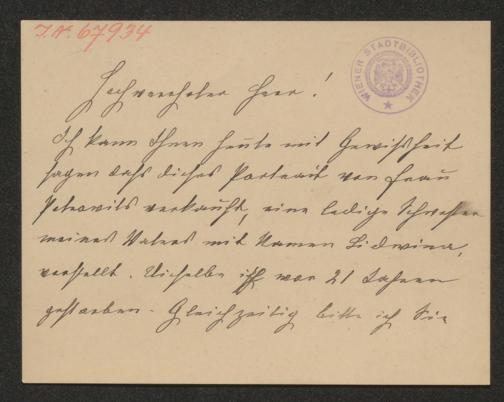 I.N. 67934
WIENER STADTBIBLIOTHEK
Hochverehrter Herr!
Ich kann Ihnen heute mit Gewißheit
sagen daß dieses Portrait von Frau
Petrowits verkauft, eine ledige Schwester
meines Vaters mit Namen Lidwina,
vorstellt. Dieselbe ist vor 21 Jahren
gestorben. Gleichzeitig bitte ich Sie